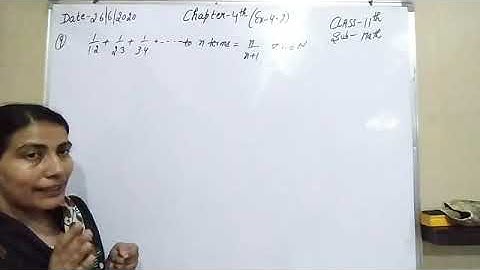 Date-26/6/2020
Chapter-4th (Ex-4.2)
CLASS-11th
Sub- Math
1/1.2 + 1/2.3 + 1/3.4 + ...... to n terms = n/n+1 ∀ n∈N